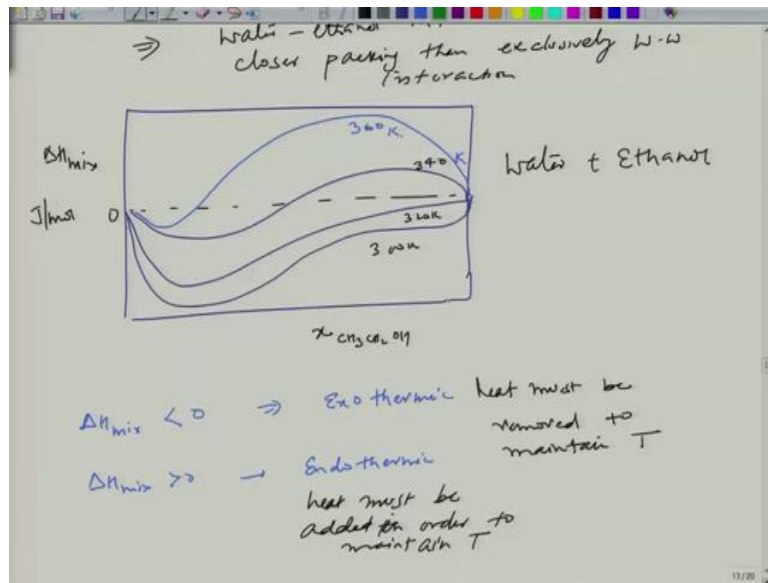 ⇒ Water - ethanol
closer packing than exclusively W-W
interaction
360 K.
ΔHmix
340 K
Water + Ethanol
J/mol 0
320K
300K
x CH3CH2OH
ΔHmix < 0 ⇒ Exothermic heat must be
removed to
maintain T
ΔHmix >0 → Endothermic
heat must be
added in order to
maintain T
13/20